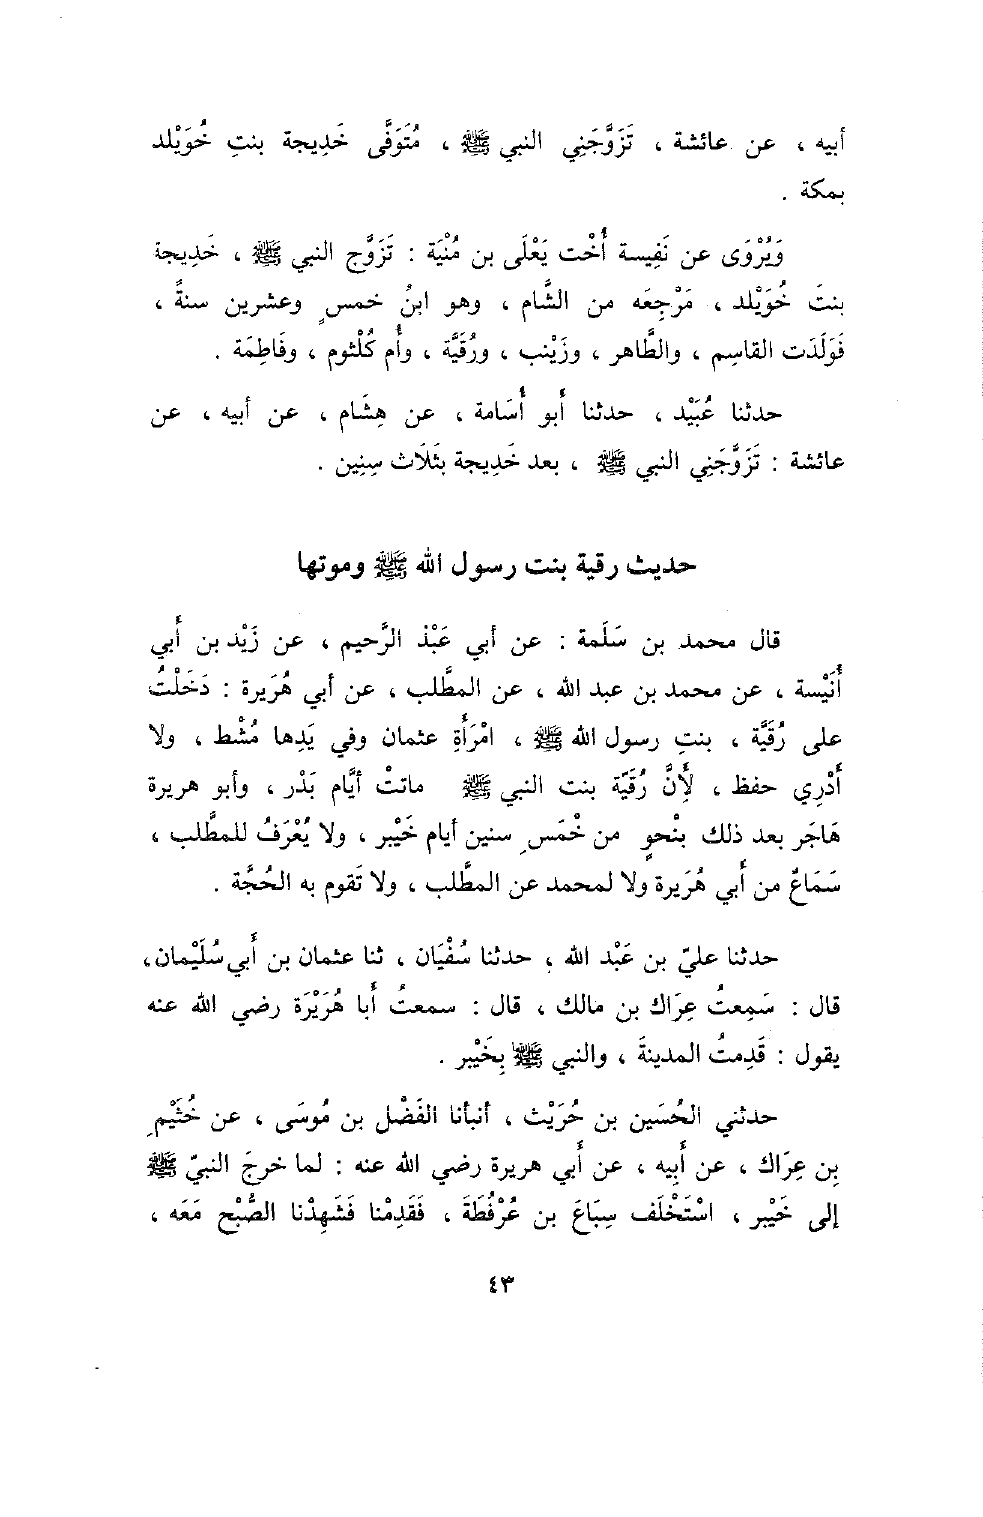 أبيه ، عن عائشة ، تَزَوَّجَنِي النبي ﷺ ، مُتَوَفَّى خَدِيجة بنتِ خُوَيْلد
بمكة .
وَيُرْوَى عن نَفِيسة أُخْت يَعْلَى بن مُنْيَة : تَزَوَّج النبي ﷺ ، خَدِيجة
بنتَ خُوَيْلد ، مَرْجِعَه من الشَّام ، وهو ابنُ خمسٍ وعشرين سنةً ،
فَوَلَدَت القاسِم ، والطَّاهر ، وزَيْنب ، ورُقَيَّة ، وأُم كُلْثوم ، وفَاطِمَة .
حدثنا عُبَيْد ، حدثنا أَبو أُسَامة ، عن هِشَام ، عن أبيه ، عن
عائشة : تَزَوَّجَنِي النبي ﷺ ، بعد خَدِيجة بثَلَاث سِنِين .
حديث رقية بنت رسول الله ﷺ وموتها
قال محمد بن سَلَمة : عن أبي عَبْدْ الرَّحيم ، عن زَيْد بن أَبي
أُنَيْسة ، عن محمد بن عبد الله ، عن المطَّلب ، عن أبي هُرَيرة : دَخَلْتُ
على رُقَيَّة ، بنتِ رسول الله ﷺ ، امْرَأَةِ عثمان وفي يَدِها مُشْط ، ولا
أَدْرِي حفظ ، لِأَنَّ رُقَيّة بنت النبي ﷺ ماتتْ أَيَّام بَدْر ، وأبو هريرة
هَاجَر بعد ذلك بنْحوٍ من خْمَسِ سنين أيام خَيْبر ، ولا يُعْرَفُ للمطَّلب ،
سَمَاعٌ من أَبي هُرَيرة ولا لمحمد عن المطَّلب ، ولا تَقوم به الحُجَّة .
حدثنا عليّ بن عَبْد الله ، حدثنا سُفْيَان ، ثنا عثمان بن أَبي سُلَيْمان،
قال : سَمِعتُ عِرَاك بن مالك ، قال : سمعتُ أَبا هُرَيْرَة رضي الله عنه
يقول : قَدِمتُ المدينةَ ، والنبي ﷺ بِخَيْبر .
حدثني الحُسَين بن حُرَيْث ، أنبأنا الفَضْل بن مُوسَى ، عن خُثَيْمِ
بِن عِرَاك ، عن أَبِيه ، عن أَبي هريرة رضي الله عنه : لما خرجَ النبيّ ﷺ
إلى خَيْبر ، اسْتَخْلَف سِبَاعَ بن عُرْفُطَةَ ، فَقَدِمْنا فَشَهِدْنا الصُّبْح مَعَه ،
٤٣